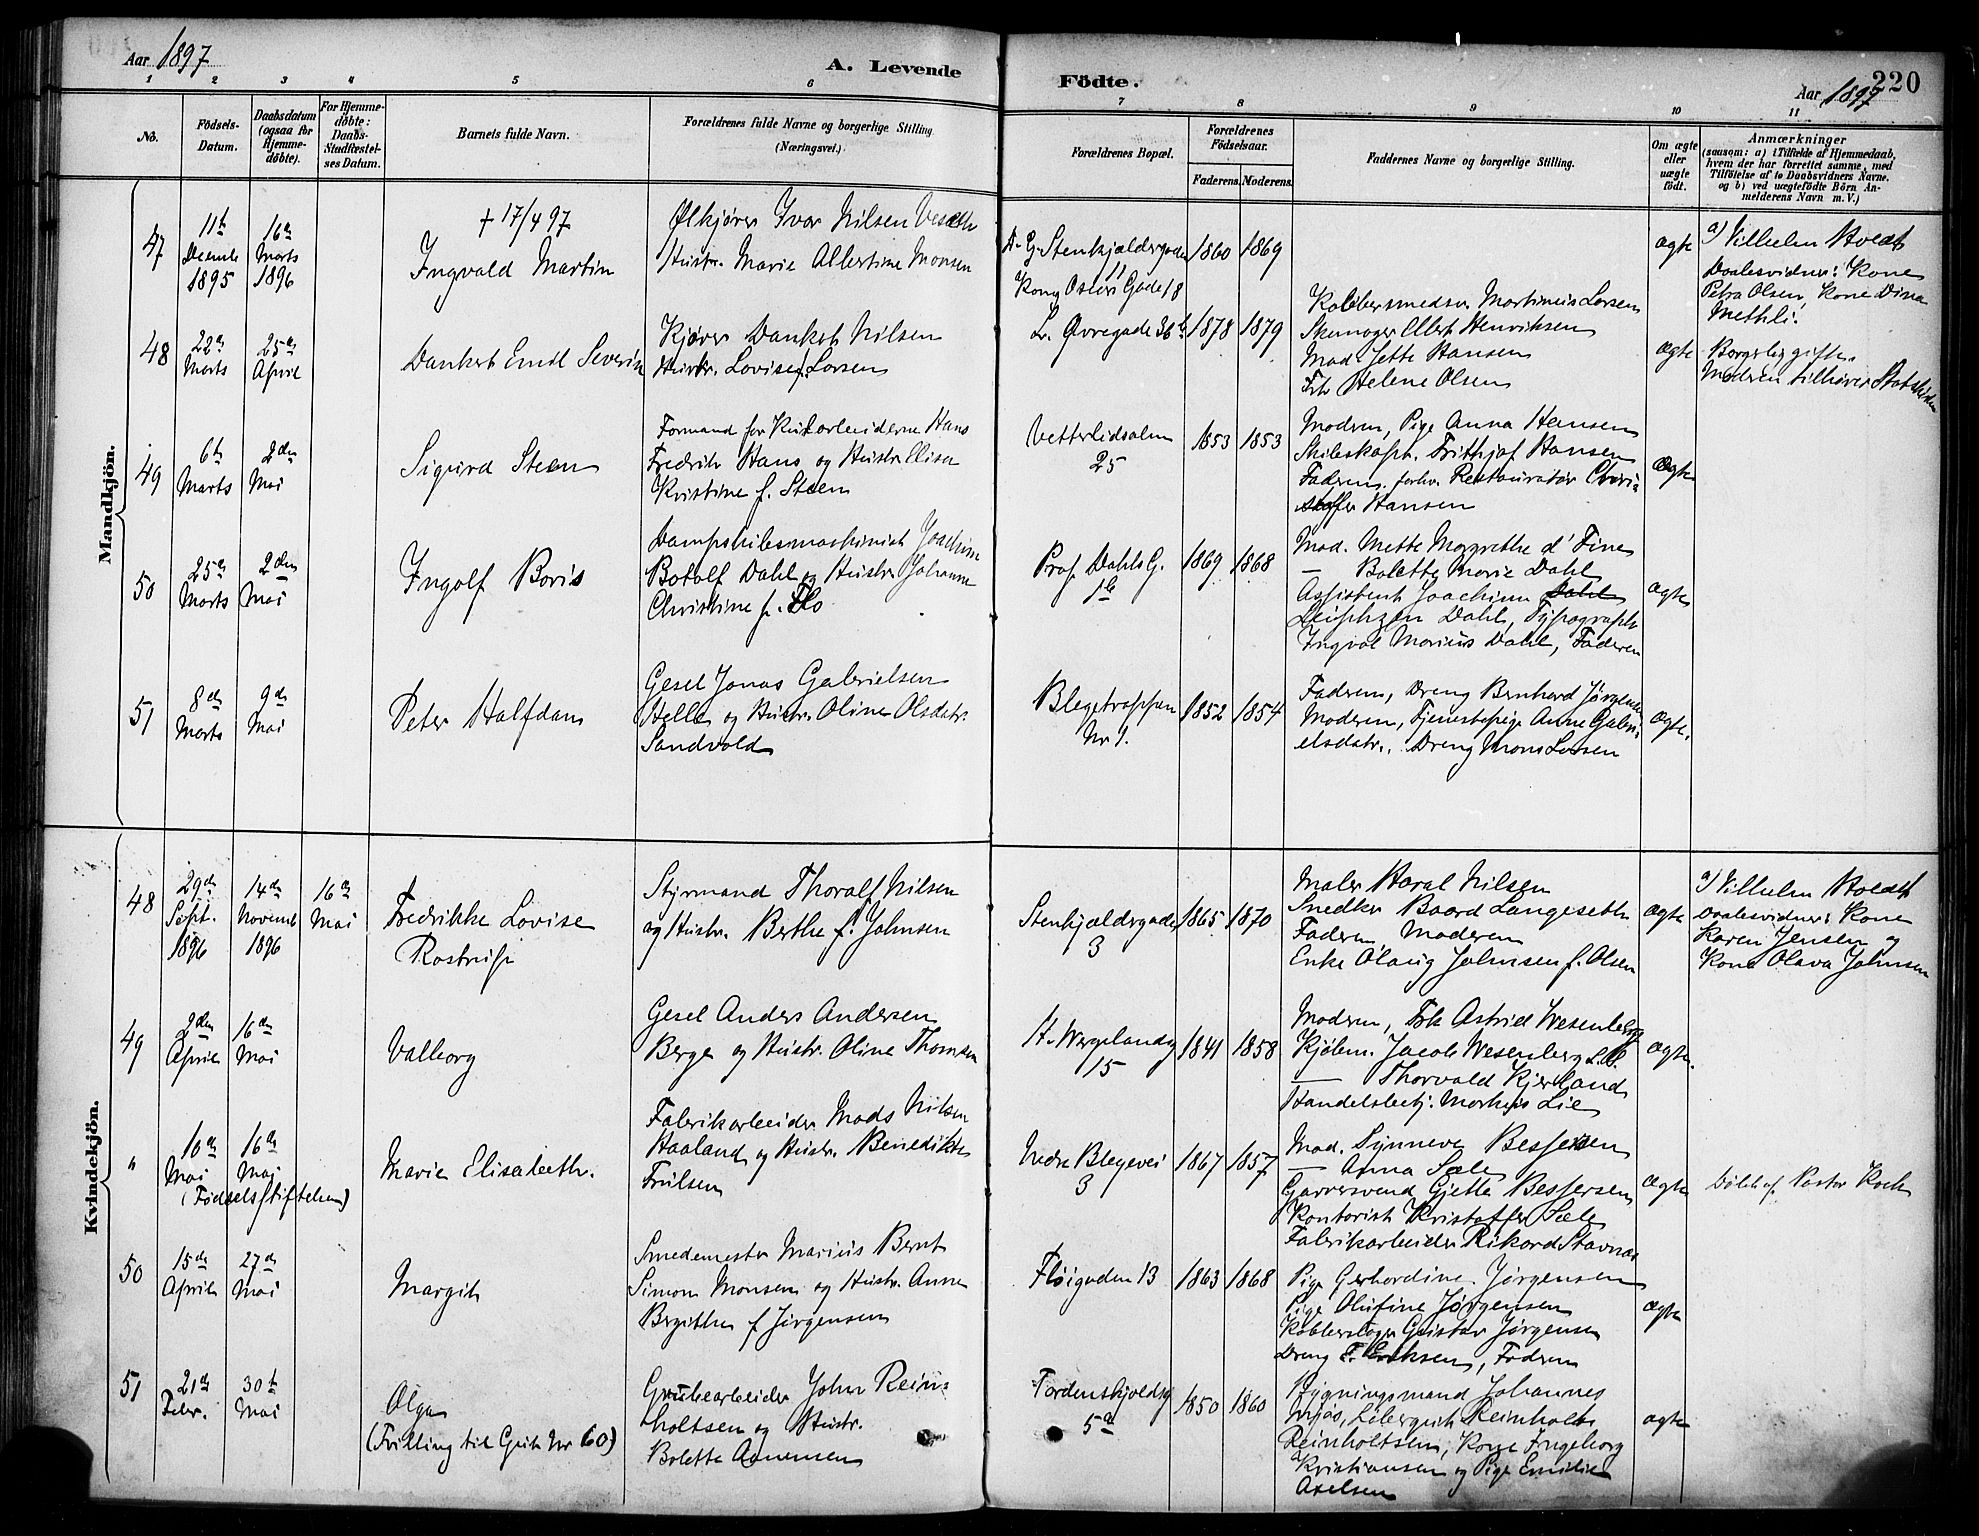 Aar 1897
A. Levende
Födte.
Aar 1897
220
1 2 3 4 5 6 7 8 9 10 11
No.
Födsels-
Datum.
Daabsdatum
(ogsaa for
Hjemme-
döbte).
For Hjemme-
döbte:
Daabs-
Stadfæstel-
ses Datum.
Barnets fulde Navn.
Forældrenes fulde Navne og borgerlige Stilling.
(Næringsvei.)
Forældrenes Bopæl.
Forældrenes
Födselsaar.
Faderens. Moderens.
Faddernes Navne og borgerlige Stilling.
Om ægte
eller
uægte
födt.
Anmærkninger
(saasom: a) i Tilfælde af Hjemmedaab,
hvem der har forrettet samme, med
Tilföielse af to Daabsvidners Navne.
og b) ved uægtefödte Börn An-
melderens Navn m. V.)
Mandkjön.
47
11te
Decemb
1895
16de
Marts
1896
+ 17/4 97
Ingvald Martin
Ølkjører Ivar Nilsen Veseth
Hustr. Marie Albertine Monsen
A. G. Stenkjeldergaden
11
Kong Oscars Gade 18
1860 1869
ægte
a) Vilhelm Holdt
Daabsvidner: Kone
Petra Olsen, Kone Dina
Methli.
48
22de
Marts
25de
April
Dankert Emil Severin
Kjører Dankert Nilsen
Hustr. Lovise f. Larsen
L. Øvregade 36b
1878 1879
Kobbersmedsv. Martinius Larsen
Skomager Elert Henriksen
Mad. Jette Hansen
Frk Helene Olsen
ægte
Borgerlig gifte.
Modren tilhører Statskirken
49
6te
Marts
2den
Mai
Sigurd Steen
Formand for Kularbeiderne Hans
Fredrik Hans og Hustr. Elisa
Kristine f. Steen
Vetterlidsalm
25
1853 1853
Modren, Pige Anna Hansen
Skibskapt. Frithjof Hansen
Faderen, forhv. Restauratør Chris-
stoffer Hansen
Ægte
50
25de
Marts
2den
Mai
Ingolf Boris
Dampskibsmaskinist Joachim
Botolf Dahl og Hustr. Johanne
Christine f. Flo
Prof. Dahls G.
1b
1869 1868
Mad. Mette Margrethe d' Fine
— Bolette Marie Dahl
Assistent Joachim Dahl
Leiphzen Dahl, Typograph
Ingval Marius Dahl, Faderen
ægte
51
8de
Marts
9de
Mai
Peter Halfdan
Gesel Jonas Gabrielsen
Helle og Hustr. Oline Olsdatr.
Sandvold
Blegetrappen
Nr 1.
1852 1854
Faderen, Dreng Bernhard Jørgensen
Moderen, Tjenestepige Anne Gabri-
elsdatr., Dreng Mons Larsen
ægte.
Kvindekjön.
48
29de
Sept.
1896
14de
Novemb
1896
16de
Mai
Fredrikke Lovise
Rostrup
Styrmand Thoralf Nilsen
og Hustr. Berthe f. Johnsen
Stenkjeldergade
3
1865 1870
Maler Haral Nilsen
Snedker Baard Langeseth
Faderen, Moderen
Enke Olaug Johnsen f. Olsen
ægte
a) Vilhelm Holdt
Daabsvidner: Kone
Karen Jensen og
Kone Olava Johnsen
49
2den
April
16de
Mai
Valborg
Gesel Anders Andersen
Berge og Hustr. Oline Thomsen
H. Wergelandsg
15
1841 1858
Modren, Frk Astrid Wesenberg
Kjøbm. Jacob Wesenberg L.B.
— Thorvald Kjerland
Handelsbetj. Markus Lie
ægte.
"
10de
Mai
16de
Mai
(Fødselsstiftelsen)
Marie Elisabeth.
Fabrikarbeider Mads Nilsen
Haaland og Hustr. Benedikte
Trulsen
Nedre Blegevei
3
1867 1857
Mad. Synneve Bessesen
— Anna Sæle
Garversvend Gjette Bessersen
Kontorist Kristoffer Sæle
Fabrikarbeider Rikard Stavnæs
ægte
Døbt af Pastor Koch
50
15de
April
27de
Mai
Margit
Smedemester Marius Bernt
Simon Monsen og Hustr. Anne
Bergithe f. Jørgensen
Fløigaden 13
1863 1868
Pige Gerhardine Jørgensen
Pige Olufine Jørgensen
Kobberslager Gustav Jørgensen
Dreng F. Eriksen, Faderen
ægte
51
21de
Febr.
30te
Mai
Olga
(Tvilling til Gut Nr 60)
Grubearbeider John Rein-
holtsen og Hustr.
Bolette Aanensen
Tordenskjoldsg
5a
1850 1860
Bygningsmand Johannes
Mjøs, Løbergut Reinholt
Reinholtsen, Kone Ingeborg
Kristiansen og Pige Emilie
Axelsen
ægte